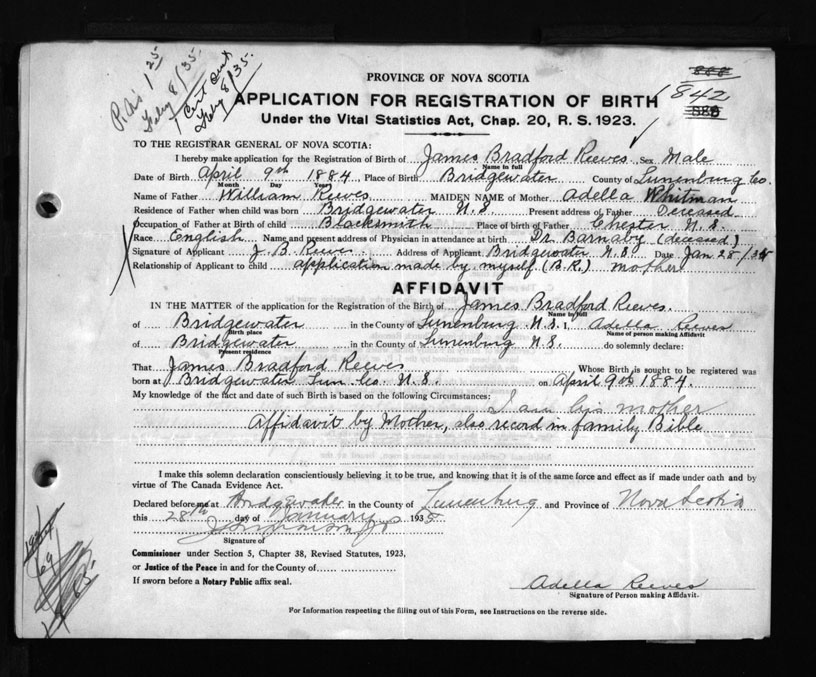 Pd. $1.25
Feby 8/35.
1 Cert sent
Feby 8/35.
PROVINCE OF NOVA SCOTIA
842
APPLICATION FOR REGISTRATION OF BIRTH
Under the Vital Statistics Act, Chap. 20, R. S. 1923.
TO THE REGISTRAR GENERAL OF NOVA SCOTIA:
I hereby make application for the Registration of Birth of James Bradford Reeves. Sex Male
Name in full
Date of Birth April 9th 1884 Place of Birth Bridgewater County of Lunenburg Co.
Month Day Year
Name of Father William Reeves MAIDEN NAME of Mother Adella Whitman
Residence of Father when child was born Bridgewater N.S. Present address of Father Deceased
Occupation of Father at Birth of Child Blacksmith Place of birth of Father Chester N.S.
Race English Name and present address of Physician in attendance at birth Dr Barnaby (deceased)
Signature of Applicant J. B. Reeves Address of Applicant Bridgewater N.S. Date Jan 28/35
Relationship of Applicant to child application made by myself (B.R.) mother
AFFIDAVIT
IN THE MATTER of the application for the Registration of the Birth of James Bradford Reeves.
Name in full
of Bridgewater in the County of Lunenburg N.S. I, Adella Reeves
Birth place Name of person making Affidavit
of Bridgewater in the County of Lunenburg N.S. do solemnly declare:
Present residence
That James Bradford Reeves Whose Birth is sought to be registered was
born at Bridgewater Lun. Co. N.S. on April 9th 1884.
My knowledge of the fact and date of such Birth is based on the following Circumstances: I am his mother
Affidavit by Mother, also record in family Bible
I make this solemn declaration conscientiously believing it to be true, and knowing that it is of the same force and effect as if made under oath and by
virtue of The Canada Evidence Act.
Declared before me at Bridgewater in the County of Lunenburg and Province of Nova Scotia
this 28th day of January 1935
Signature of
Commissioner under Section 5, Chapter 38, Revised Statutes, 1923,
or Justice of the Peace in and for the County of
If sworn before a Notary Public affix seal.
Adella Reeves
Signature of Person making Affidavit.
For Information respecting the filling out of this Form, see Instructions on the reverse side.